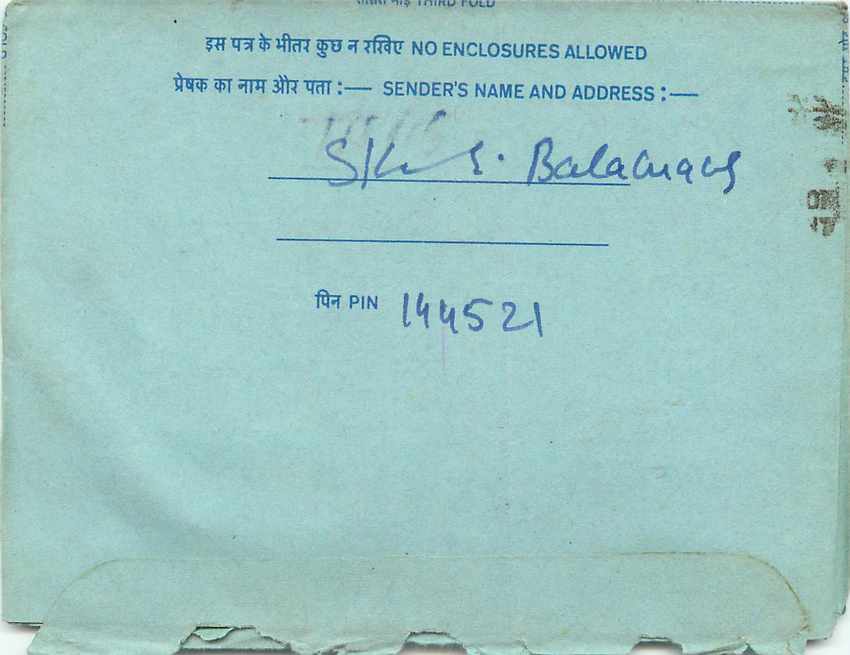 तीसरा मोड़ THIRD FOLD
इस पत्र के भीतर कुछ न रखिए NO ENCLOSURES ALLOWED
प्रेषक का नाम और पता :— SENDER'S NAME AND ADDRESS :—
S.
पिन PIN 144521